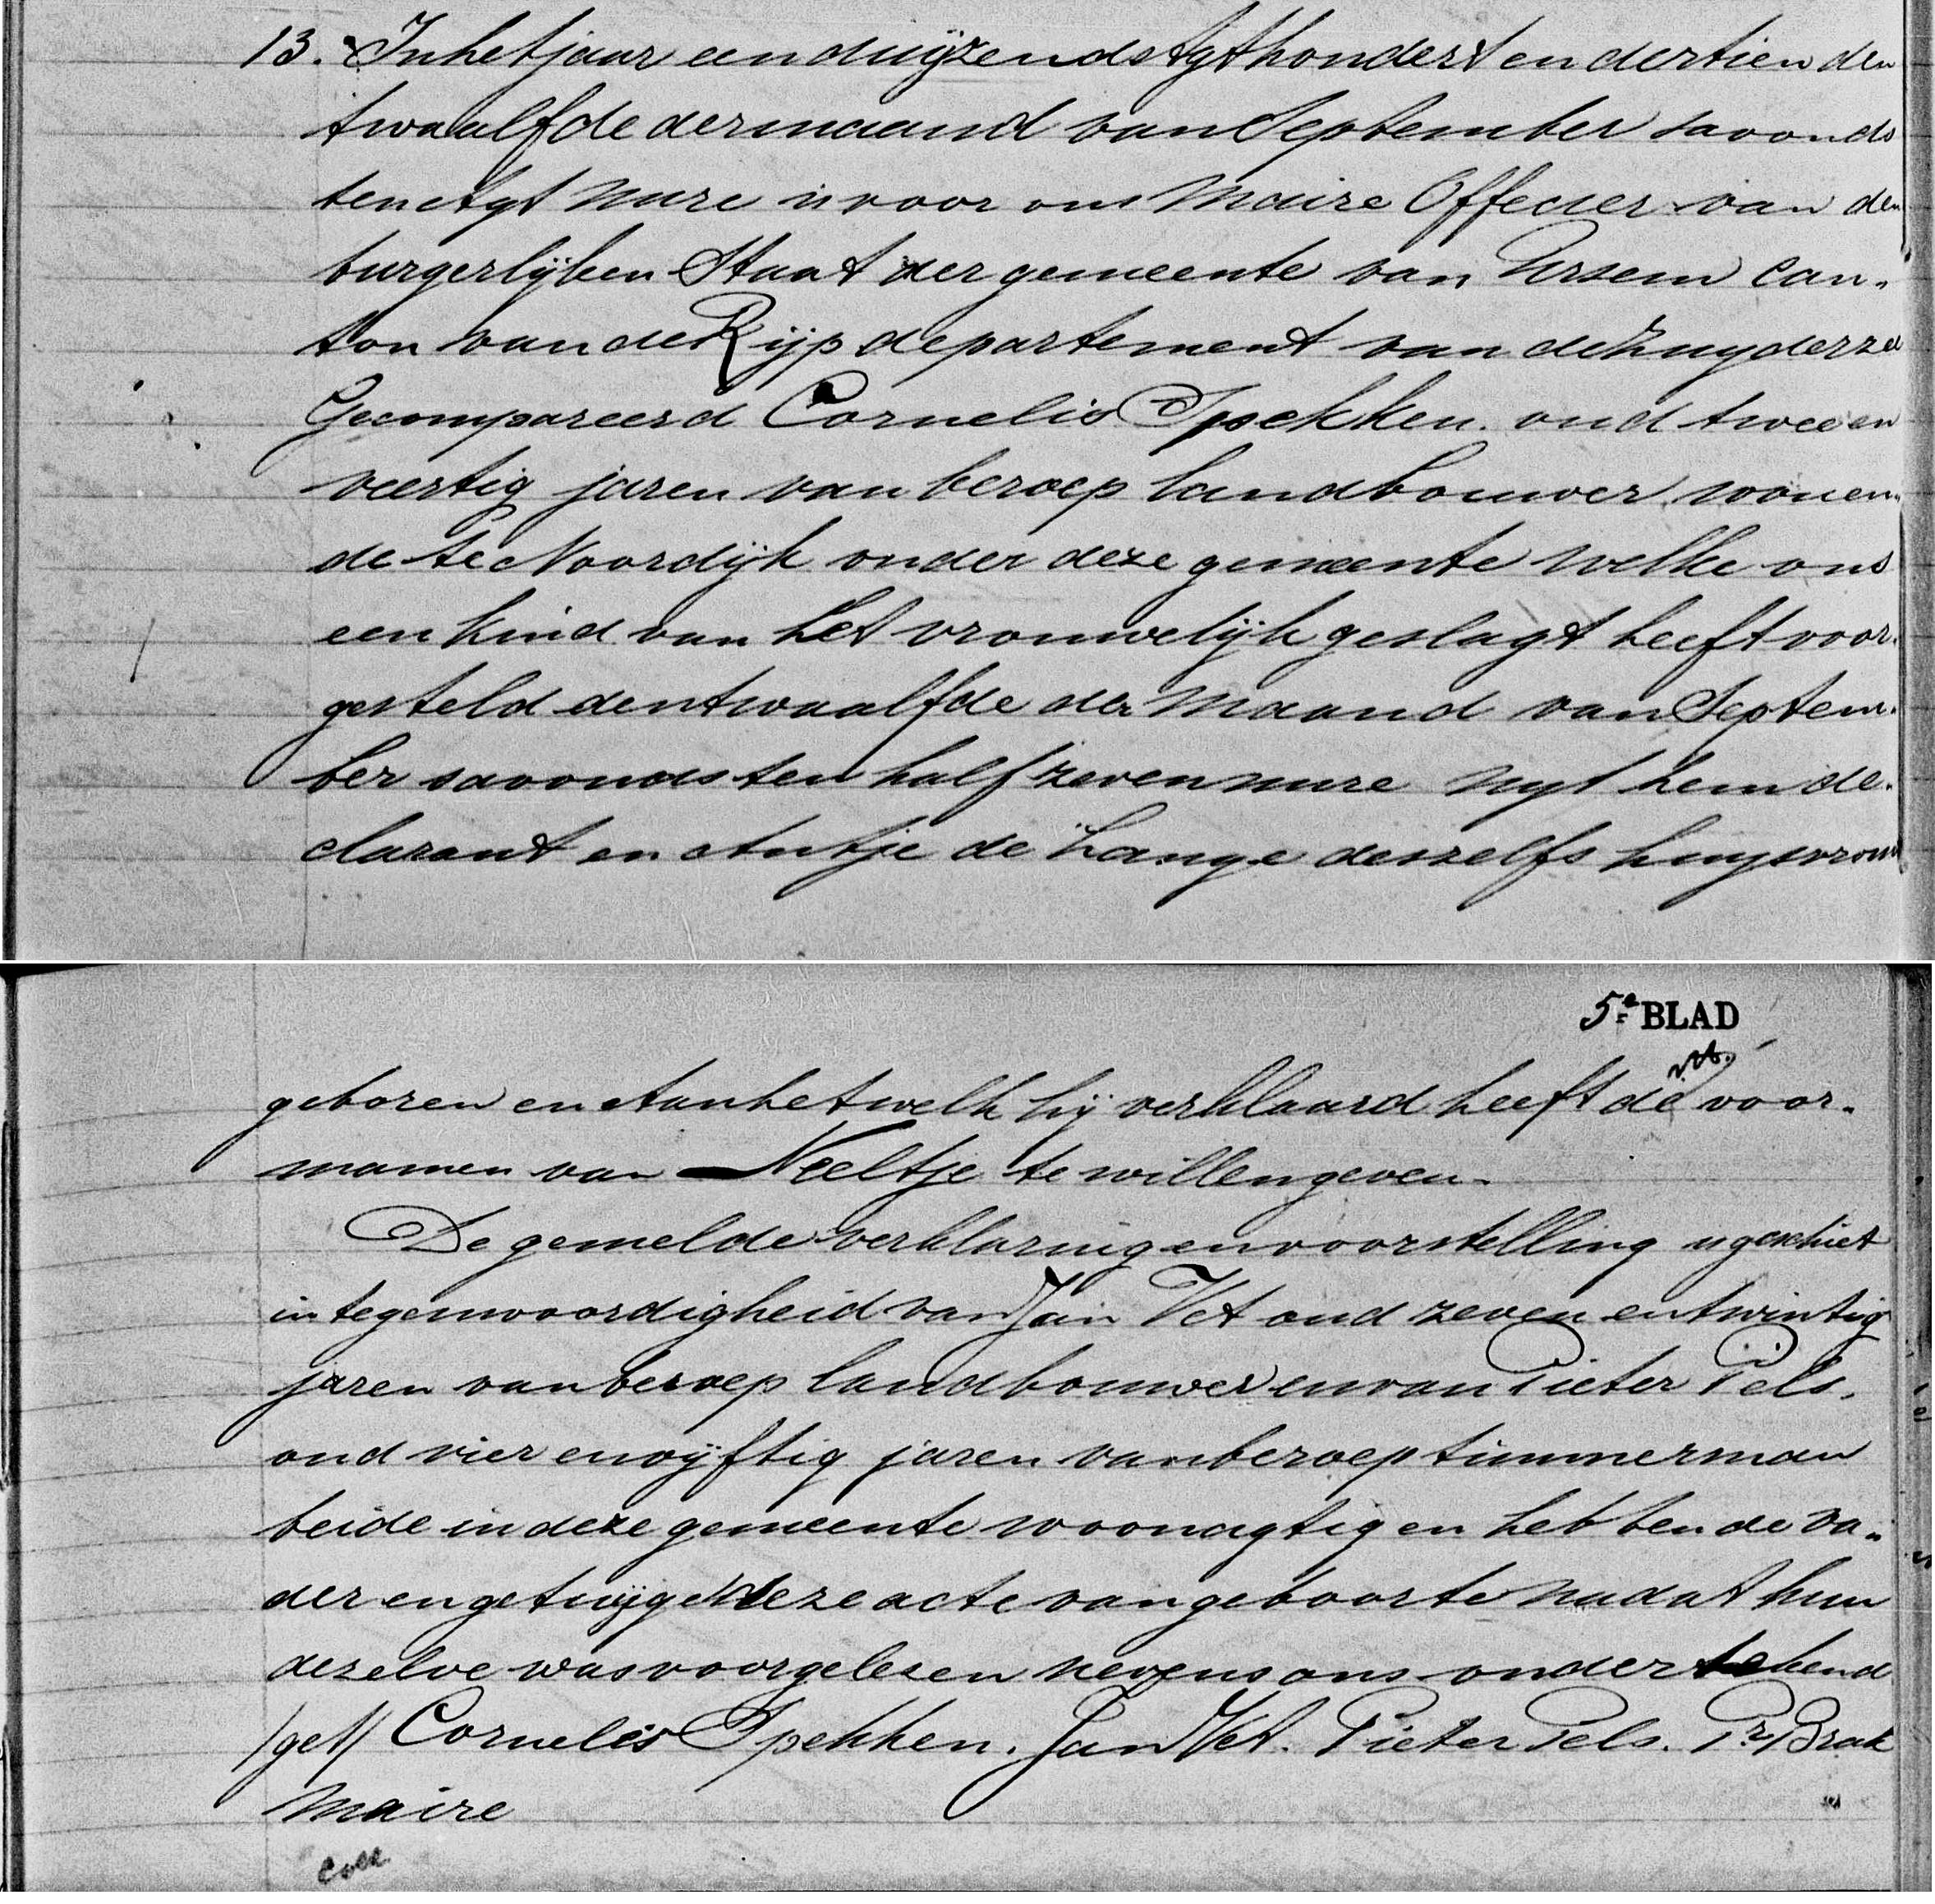 13. In het jaar een duijzend Agt hondert en dertien den
twaalfde der maand van September savonds
ten Agt uure is voor ons Maire Offecier van den
burgerlijken Staat der gemeente van Ursem Can-
ton van de Rijp departement van de Zuyderzee
Gecompareerd Cornelis Spekken oud twee en
veertig jaren van beroep landbouwer wonen-
de te Noordijk onder deze gemeente welke ons
een kind van het vrouwelijk geslagt heeft voor-
gesteld den twaalfde der Maand van Septem-
ber savonds ten half zeven uure uyt hem de-
clarant en Antje de Lange deszelfs huysvrouw
5e BLAD
geboren en Aan hetwelk hij verklaard heeft de voor-
namen van Neeltje te willen geven.
De gemelde verklaring en voorstelling is geschiet
in tegenwoordigheid van Jan Vet oud zeven en twintig
jaren van beroep landbouwer en van Pieter Pels,
oud vier en vijftig jaren van beroep timmerman
beide in deze gemeente woonagtig en hebben de va-
der en getuijgen deze acte van geboorte nadat hun
dezelve was voorgelesen nevens ons ondertekend
/get/ Cornelis Spekken. Jan Vet. Pieter Pels. Pr Brak
Maire